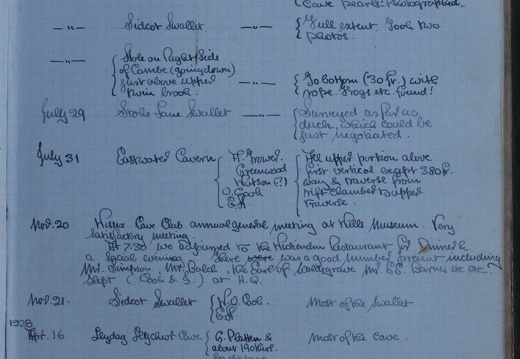 Cave pearls. Photographed.
—"— Sidcot Swallet —"— Full extent. Took two
photos.
—"— Hole on Right Side
of Combe (going down)
just above upper
twin brook. —"— To bottom (30 ft.) with
rope. Frogs etc. found!
July 29 Stoke Lane Swallet —"— Surveyed as far as
duck, which could be
just negotiated.
July 31 Eastwater Cavern
Greenwood
Hatson (?)
The upper portion above
first vertical except 380ft.
way & traverse from
rift chamber to upper
traverse.
Nov. 20 Wessex Cave Club annual general meeting at Wells Museum. Very
satisfactory meeting.
At 7.30 we adjourned to the Restaurant for Dinner &
a social evening. There was a good number present including
Mr. Simpson, Mr. Balch, the Earl of Waldegrave, Mr. Barnes etc etc.
Slept at H.Q.
Nov. 21. Sidcot Swallet Most of the Swallet
1938
Apr. 16 Cave G. Platten &
about 190
Most of the Cave.